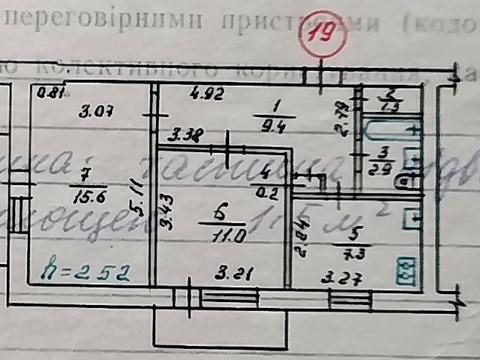 переговірними пристроями (кодо
19
ю колективного користування, за
0.81
3.07
4.92
1
9.4
2.79
2
1.5
3.38
3
2.9
7
15.6
5.11
3.43
4
0.2
6
11.0
2.84
5
7.3
3.21
3.27
h=2.52
площею 1.5 м²